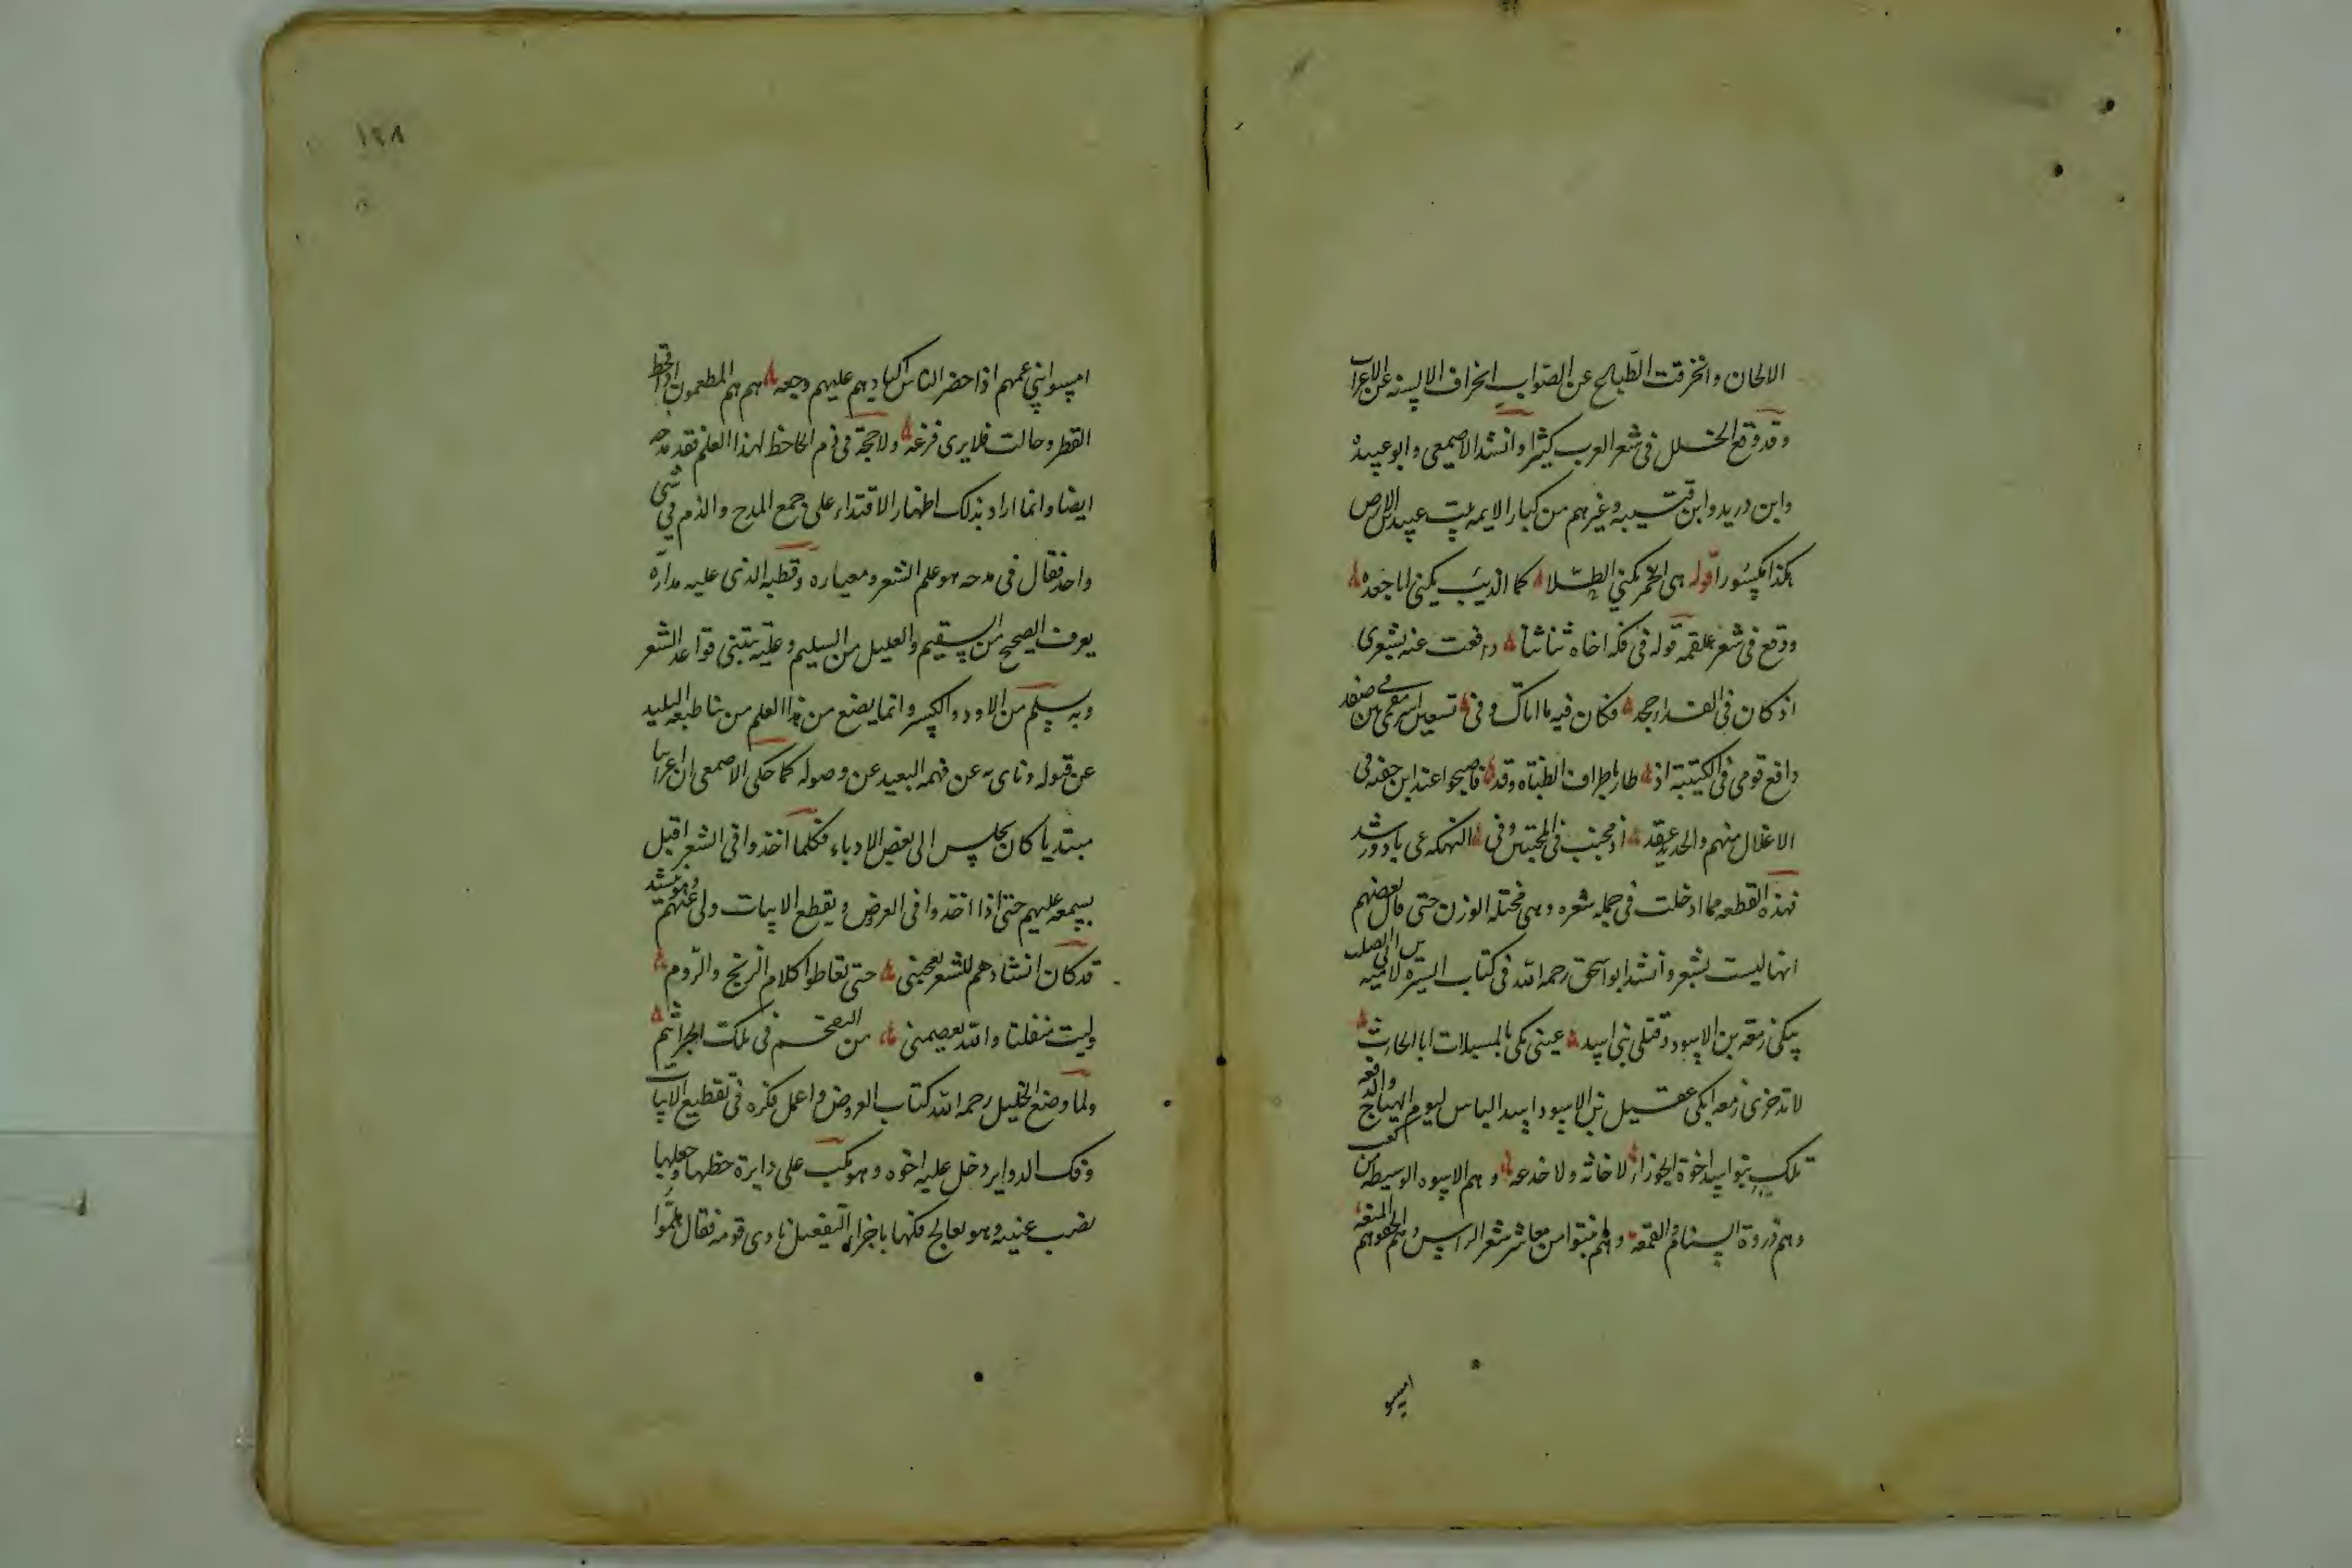 الالحان وانخرقت الطبايع عن الصواب انخراف الالسنه عن الاعراب
وقد وقع الخلل فى شعر العرب كثيرا وانشد الاصمعى وابو عبيده
وابن دريد وابن قتيبه وغيرهم من كبار الايمه بيت عبيد بن الابرص
هكذا مكسورا قوله هى الخمر تكنى الطلا كما الذيب يكنى ابا جعده
ووقع فى شعر علقمه قوله فى فكه اخاه شاشا دافعت عنه بشعرى
اذ كان فى الفداء جحد فكان فيه ما اتاك وفى تسعين اسرى مقرنين صفد
دافع قومى فى الكتيبة اذ طار باطراف الظباه وقد فاصبحوا عند ابن جفنه فى
الاغلال منهم والحديد عقد اذ مجنب فى المجنبين وفى النهكه غى باد ورشد
فهذه القطعه مما ادخلت فى جمله شعره وهى مختله الوزن حتى قال بعضهم
انها ليست بشعر وانشد ابو اسحق رحمه الله فى كتاب السيره لاميه بن ابى الصلت
يبكى زمعه بن الاسود وقتلى بنى اسد عينى بكى بالمسبلات ابا الحارث
لا تذخرى زمعه ابكى عقيل بن الاسود اسد الباس ليوم الهياج والدفعه
تلك بنو اسد اخوة الجوزاء لا خانه ولا خدعه وهم الاسره الوسيطه من كعب
وهم ذروة السنام والقمعه وهم انبتوا من معاشر شعر الراس وهم الحقوهم المنعه
امسو
١٤٨
امسوا بنى عمهم اذا حضر الناس اكبادهم عليهم وجعه هم هم المطعمون اذا قحط
القطر وحالت فلا يرى قزعه ولا حجة فى ذم الجاحظ لهذا العلم فقد مدحه
ايضا وانما اراد بذلك اظهار الاقتداء على جمع المدح والذم فى شى
واحد فقال فى مدحه هو علم الشعر ومعياره وقطبه الذى عليه مداره
يعرف الصحيح من السقيم والعليل من السليم وعليه تبتنى قواعد الشعر
وبه يسلم من الاود والكسر وانما يضع من هذا العلم من نبا طبعه البليد
عن قبوله وناى به عن فهمه البعيد عن وصوله كما حكى الاصمعى ان اعرابيا
مبتديا كان يجلس الى بعض الادباء فكلما اخذوا فى الشعر اقبل
بسمعه عليهم حتى اذا اخذوا فى العروض وتقطيع الابيات ولى عنهم وهو ينشد
قد كان انشادهم للشعر يعجبنى حتى تعاطوا كلام الزنج والروم
وليت منفلتا والله يعصمنى من التقحم فى تلك الجراثيم
ولما وضع الخليل رحمه الله كتاب العروض واعمل فكره فى تقطيع الابيات
وفك الدواير دخل عليه اخوه وهو مكب على دايرة خطها وجعلها
نصب عينيه وهو يعالج فكها باجزاء التفعيل نادى قومه فقال هلموا